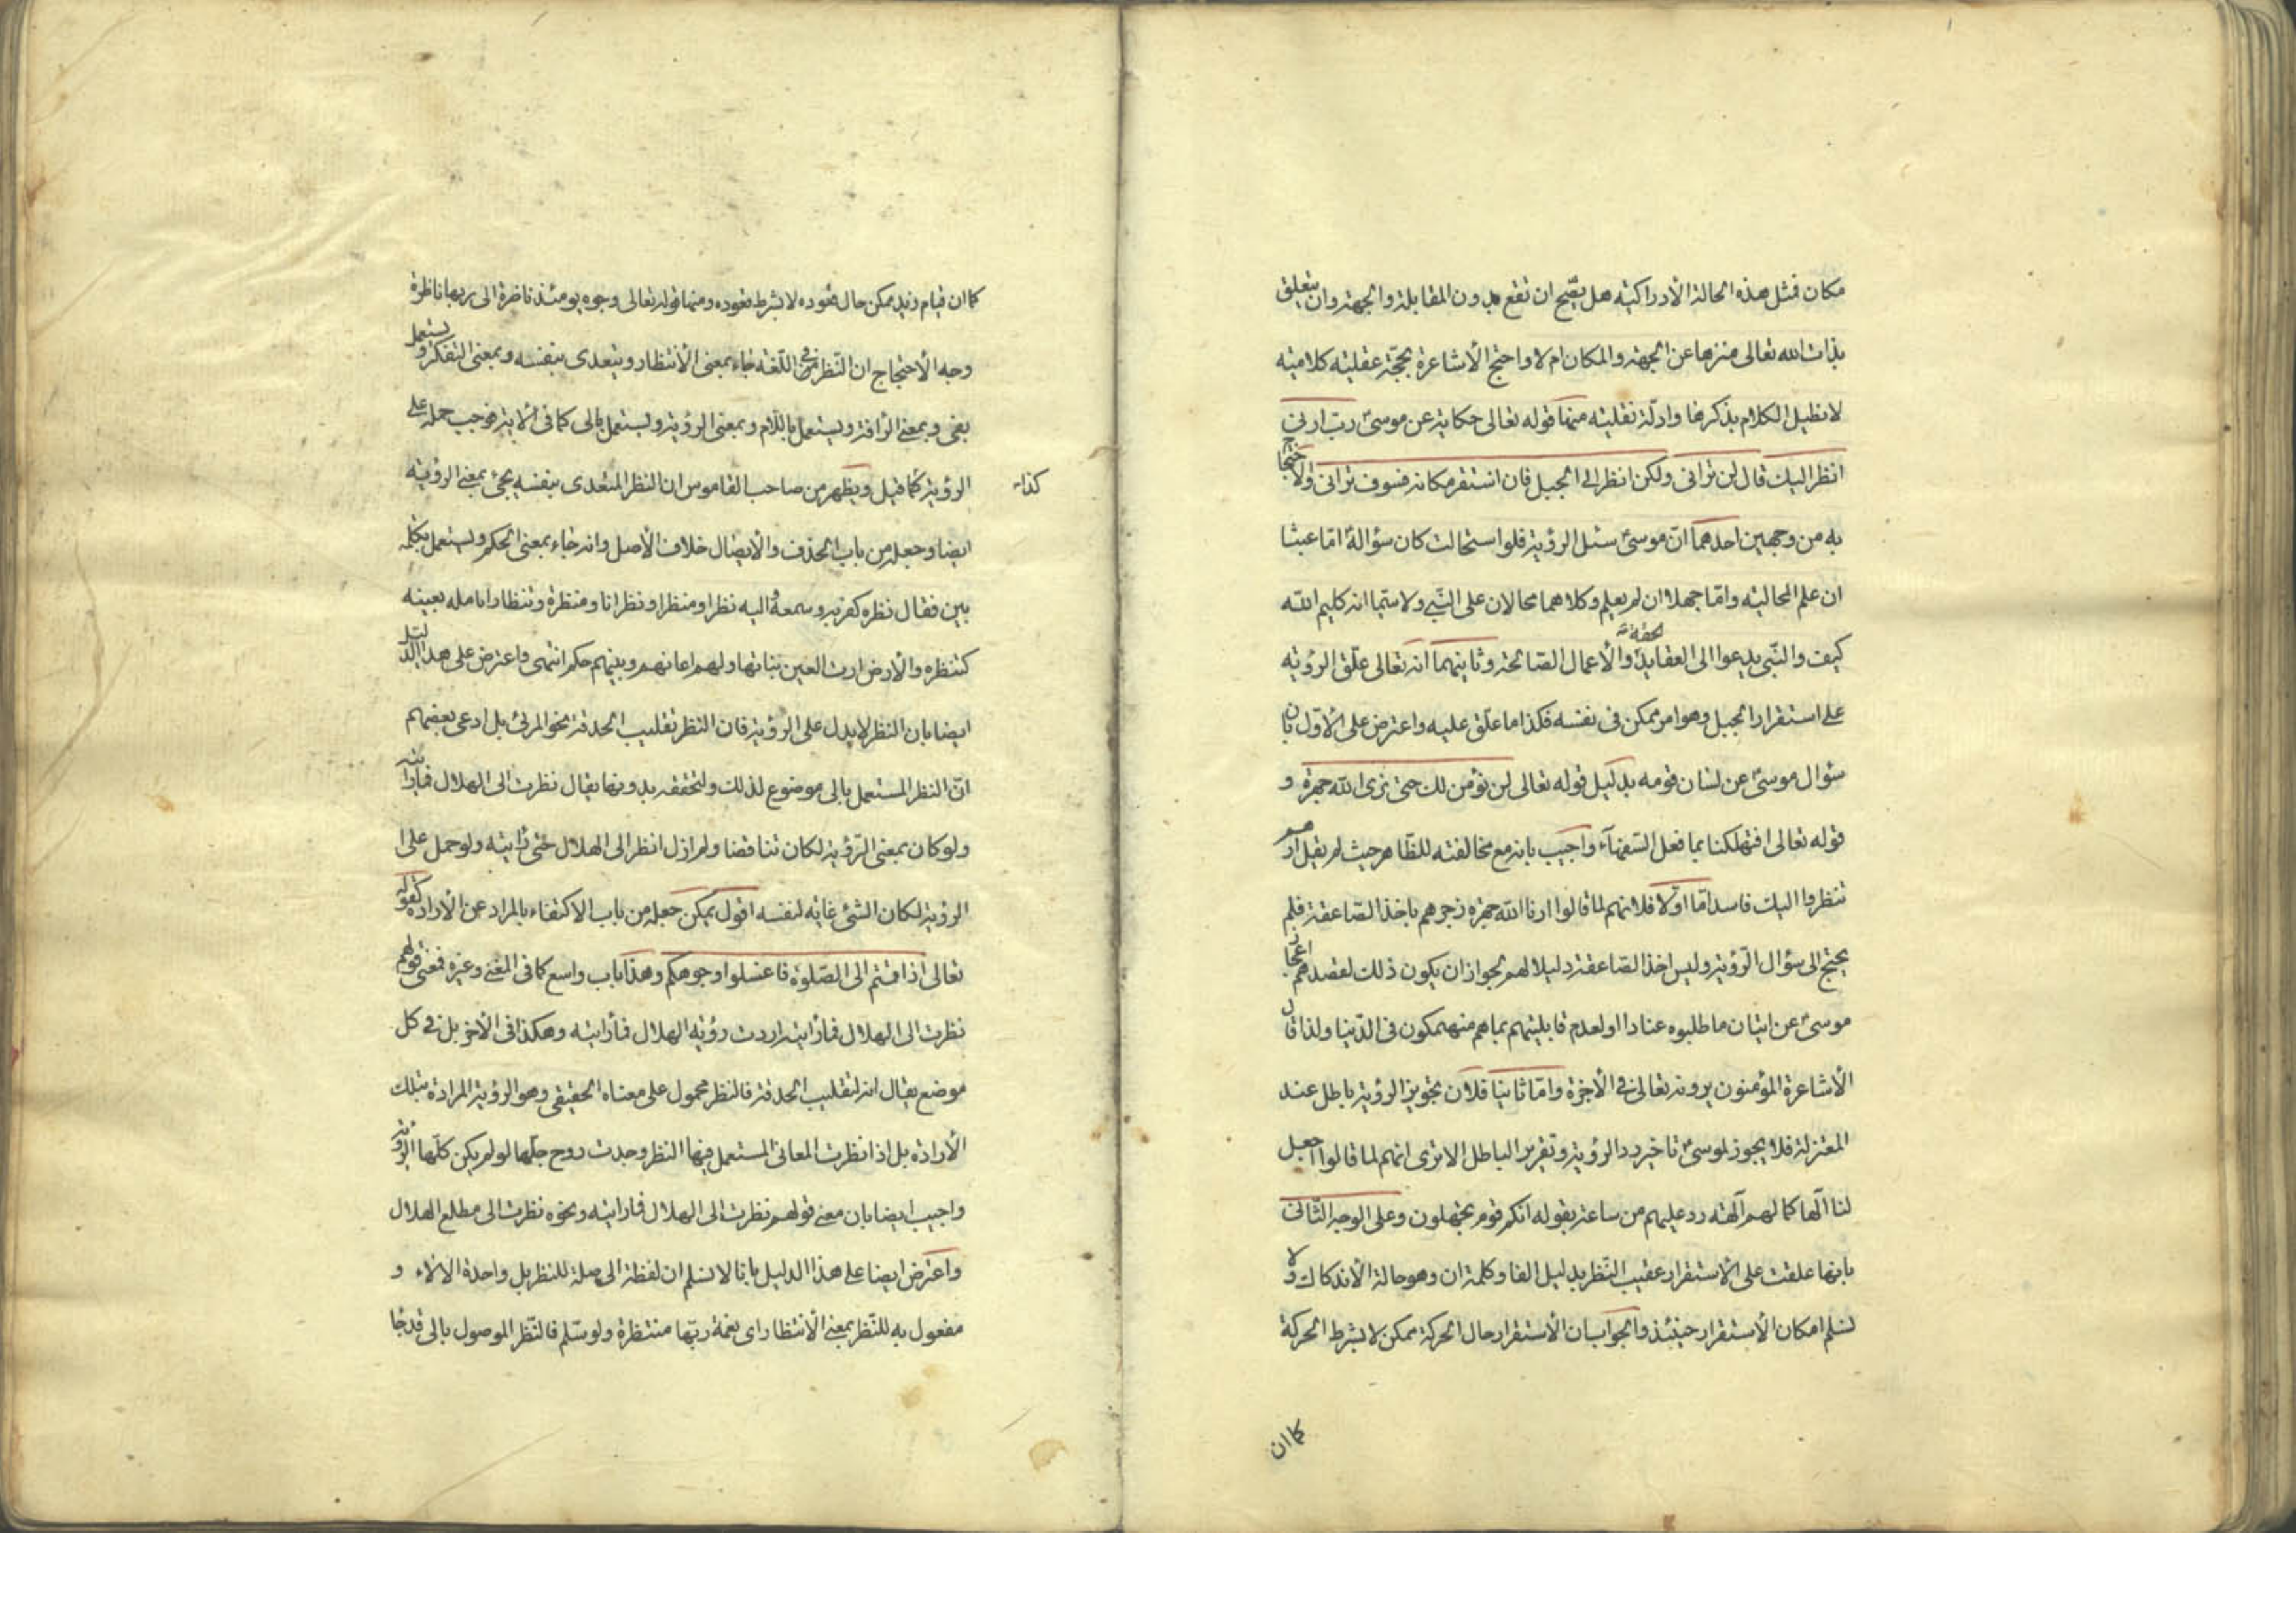 مكان فمثل هذه الحالة الأدراكيّه هل يصّح ان تقع بدون المقابلة والجهة وان يتعلق
بذات الله تعالى منزها عن الجهة والمكان ام لا واحتج الأشاعرة بحجّة عقليّه كلاميّه
لا نطيل الكلام بذكرها وادلّة نقليّه منها قوله تعالى حكاية عن موسىٰ ربّ ارنى
انظر اليك قال لن ترانى ولكن انظر الى الجبل فان استقر مكانه فسوف ترانى والاحتجاج
به من وجهين احدهما انّ موسىٰ سئل الرؤية فلو استحالت كان سؤاله امّا عبثا
ان علم الحاليه وامّا جهلا ان لم يعلم وكلاهما محالان على النّبي ولا سيّما انه كليم الله
كيف والنّبي يدعوا الى العقايد الحقة والأعمال الصّالحة وثانيهما انه تعالى علّق الرؤيه
على استقرار الجبل وهو امر ممكن فى نفسه فكذا ما علّق عليه واعترض على الأوّل بان
سؤال موسىٰ عن لسان قومه بدليل قوله تعالى لن نؤمن لك حتى نرى الله جهرة و
قوله تعالى افتهلكنا بما فعل السّفهآء واجيب بانه مع مخالفته للظّاهر حيث لم يقل ارهم
ننظروا اليك فاسد امّا اوّلا فلانهم لما قالوا ارنا الله جهرة زجرهم باخذ الصّاعقة فلم
يحتج الى سؤال الرّؤية وليس اخذ الصّاعقة دليلا لهم لجواز ان يكون ذلك لقصدهم اعجاز
موسىٰ عن اتيان ما طلبوه عنادا او لعدم قابليتهم بما هم منهمكون فى الدّنيا ولذا قال
الأشاعرة المؤمنون يرونه تعالى فى الأخرة وامّا ثانيا فلان تجويز الرؤية باطل عند
المعتزلة فلا يجوز لموسىٰ تاخير رد الرؤية وتقرير الباطل الا ترى انهم لما قالوا اجعل
لنا آلها كما لهم آلهة رد عليهم من ساعته بقوله انكم قوم تجهلون وعلى الوجه الثّانى
بانها علقت على الأستقرار عقيب النّظر بدليل الفا وكلمة ان وهو حالة الأندكاك ولا
نسلم امكان الأستقرار حينئذ والجواب ان الأستقرار حال الحركة ممكن لا بشرط الحركة
كما ان
كما ان قيام زيد يمكن حال قعوده لا بشرط قعوده ومنها قوله تعالى وجوه يومئذ ناضرة الى ربها ناظرة
وجه الأحتجاج ان النّظر فى اللّغة جاء بمعنى الأنتظار ويتعدى بنفسه وبمعنى التفكر ويستعمل
بفى وبمعنى الرّافة ويستعمل باللّام وبمعنى الرؤية ويستعمل بالى كما فى الأية فوجب حمله على
الرؤية كما قيل ويظهر من صاحب القاموس ان النظر المتعدى بنفسه يجئ بمعنى الرؤية
كذا
ايضا وجعله من باب الحذف والأيصال خلاف الأصل وانه جاء بمعنى الحكم ويستعمل بكلمه
بين فقال نظره كضربه وسمعه واليه نظرا ومنظرا ونظرانا ومنظرة وتنظارا تامله بعينه
كتنظره والأرض ارت العين نباتها ولهم اعانهم وبينهم حكم انتهى واعترض على هذا الدليل
ايضا بان النظر لا يدل على الرؤية فان النظر تقليب الحدقة نحو المرئ بل ادعى بعضهم
انّ النظر المستعمل بالى موضوع لذلك ولتحققه بدونها يقال نظرت الى الهلال فما رايته
ولو كان بمعنى الرّؤية لكان تناقضا ولم ازل انظر الى الهلال حتى رايته ولو حمل على
الرؤية لكان الشئ غايه لنفسه اقول يمكن جعله من باب الاكتفاء بالمراد عن الأراده كقوله
تعالى اذا قمتم الى الصّلوة فاغسلوا وجوهكم وهذا باب واسع كما فى المغنى وغيره فمعنى قولهم
نظرت الى الهلال فما رايته اردت رؤيه الهلال فما رايته وهكذا فى الأخر بل فى كل
موضع يقال انه لتقليب الحدقة فالنظر محمول على معناه الحقيقى وهو الرؤية المرادة بتلك
الأرادة بل اذا نظرت المعانى المستعمل فيها النظر وجدت روح جلّها لو لم يكن كلّها الرؤية
واجيب ايضا بان معنى قولهم نظرت الى الهلال فما رايته ونحوه نظرت الى مطلع الهلال
واعترض ايضا على هذا الدليل بانا لا نسلم ان لفظة الى صلة للنظر بل واحدة الالاء و
مفعول به للنّظر بمعنى الأنتظار اى نعمة ربّها منتظرة ولو سّلم فالنّظر الموصول بالى قد جا